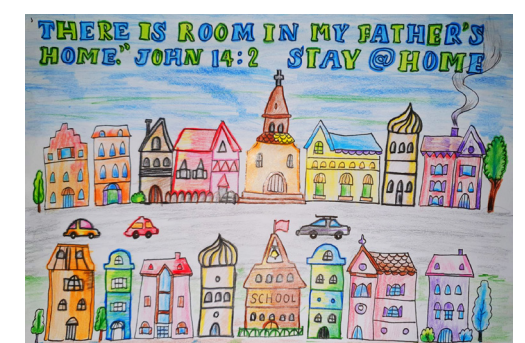 "THERE IS ROOM IN MY FATHER'S
HOME." JOHN 14:2 STAY @ HOME
SCHOOL